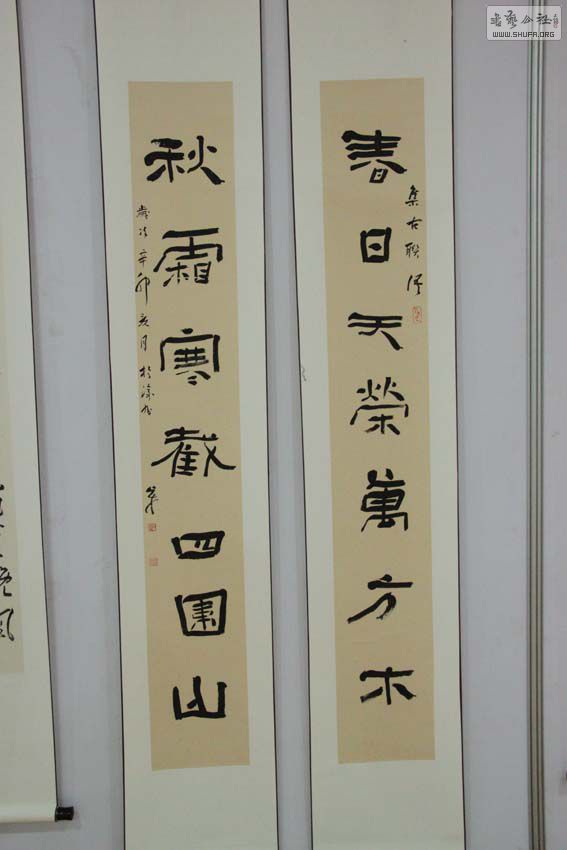 春日天榮萬方木
集古聯
秋霜寒截四圍山
歲次辛卯亥月於
書藝公社
WWW.SHUFA.ORG